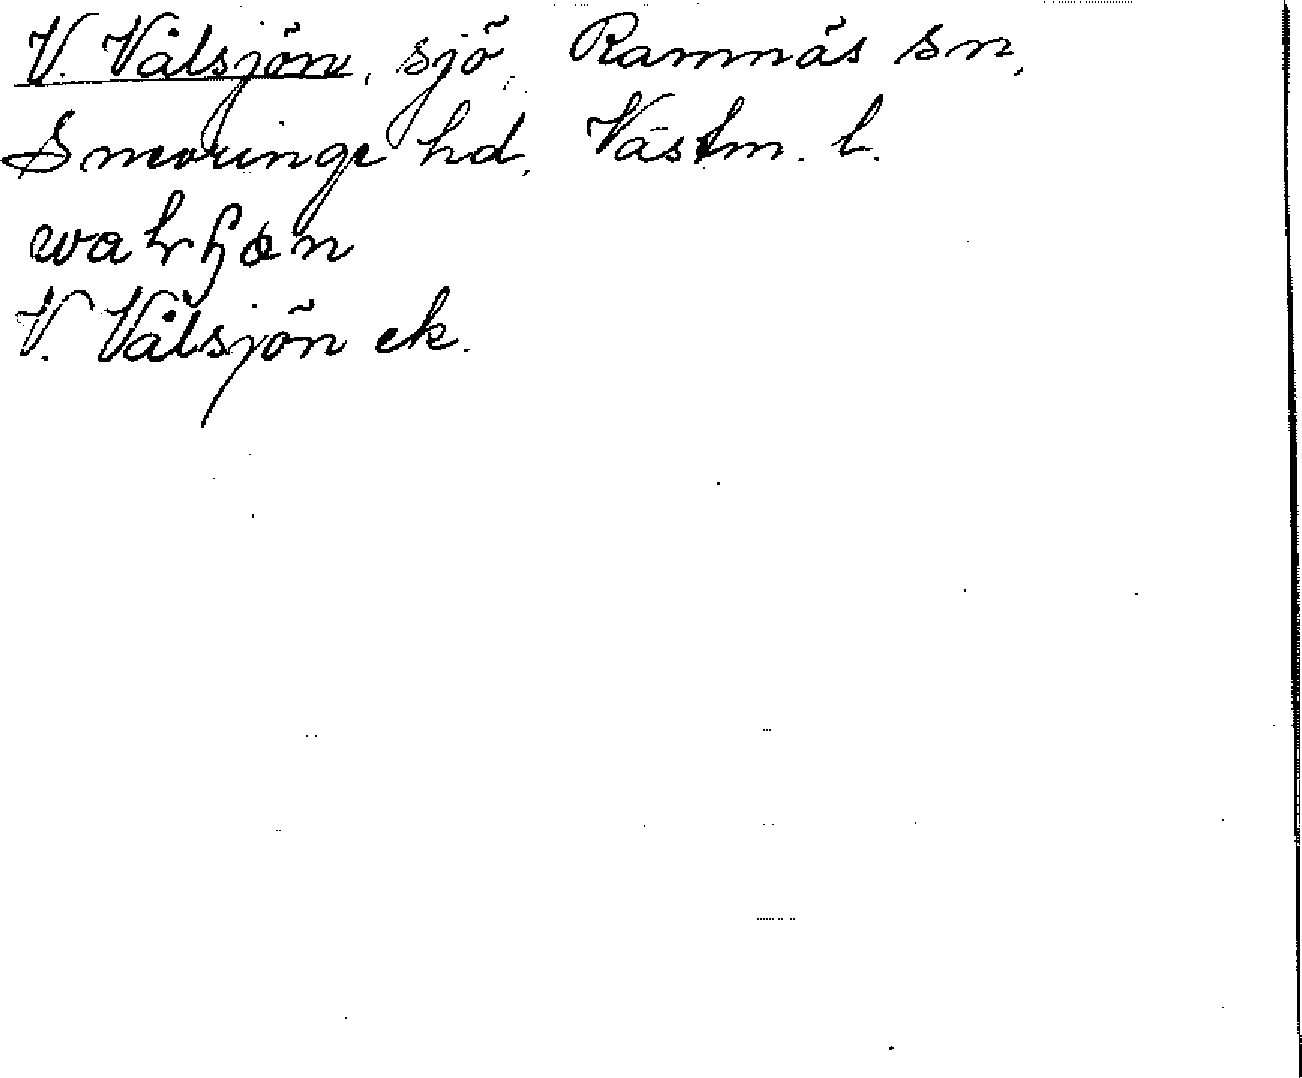 V. Välsjön, sjö, Ramnäs sn,
Snevringe hd, Västm. l.
V. Välsjön ek.